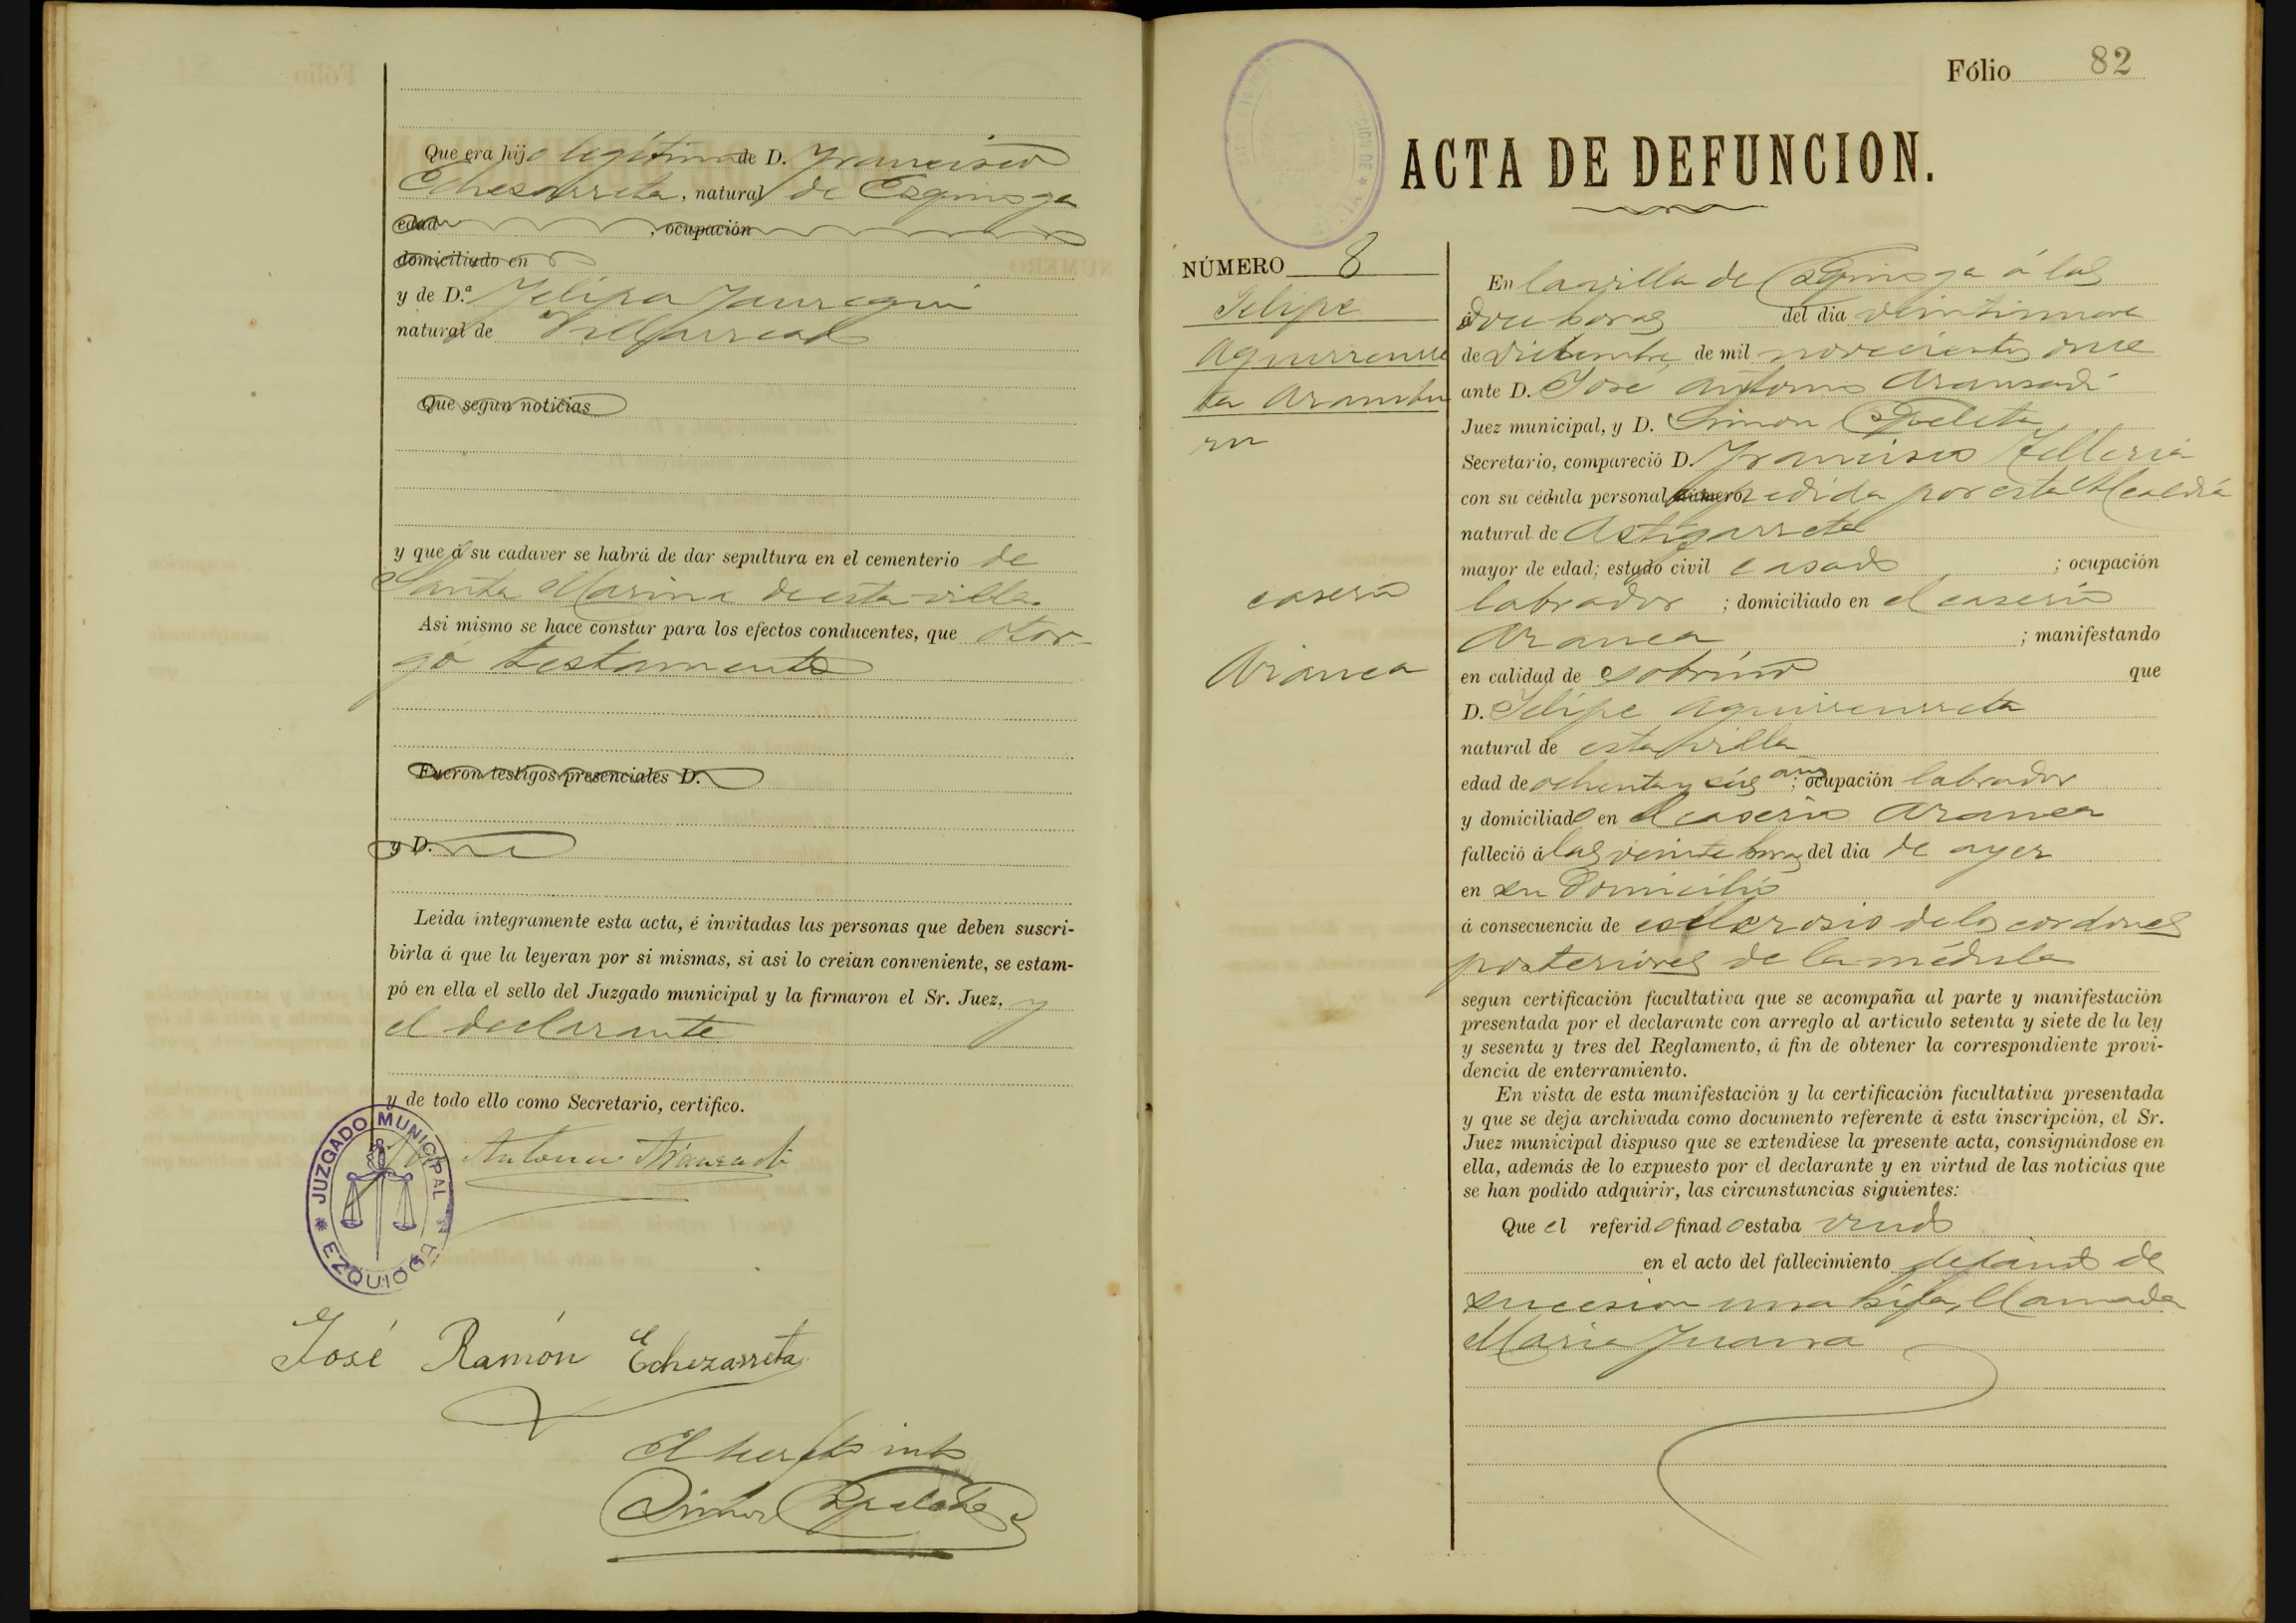 Que era hijo legítimo de D. Francisco
Echezarreta, natural de Ezquioga
edad , ocupación
domiciliado en
y de D.ª Felipa Jauregui
natural de Villarreal
Que segun noticias
y que á su cadaver se habrá de dar sepultura en el cementerio de
Santa Marina de esta villa.
Asi mismo se hace constar para los efectos conducentes, que otor-
gó testamento
Fueron testigos presenciales D.
y D.
Leida íntegramente esta acta, é invitadas las personas que deben suscri-
birla á que la leyeran por si mismas, si asi lo creian conveniente, se estam-
pó en ella el sello del Juzgado municipal y la firmaron el Sr. Juez, y
el declarante
y de todo ello como Secretario, certifico.
JUZGADO MUNICIPAL
EZQUIOGA
José Antonio Aranzadi
José Ramón Echezarreta
El Secretario
Simon Ezpeleta
Fólio 82
ACTA DE DEFUNCION.
NÚMERO 8
Felipe
Aguirreurre
ta Arambu
ru
caserío
Aranea
En la villa de Ezquioga á las
doce horas del dia veintinueve
de Diciembre de mil novecientos once
ante D. José Antonio Aranzadi
Juez municipal, y D. Simon Ezpeleta
Secretario, compareció D. Francisco Telleria
con su cédula personal número expedida por esta Alcaldía
natural de Astigarreta
mayor de edad; estado civil casado ; ocupación
labrador ; domiciliado en el caserío
Aranea ; manifestando
en calidad de sobrino que
D. Felipe Aguirreurreta
natural de esta villa
edad de ochenta y seis años; ocupación labrador
y domiciliado en el caserio Aranea
falleció á las veinte horas del dia de ayer
en su domicilio
á consecuencia de esclerosis de los cordones
posteriores de la médula
segun certificación facultativa que se acompaña al parte y manifestación
presentada por el declarante con arreglo al artículo setenta y siete de la ley
y sesenta y tres del Reglamento, á fin de obtener la correspondiente provi-
dencia de enterramiento.
En vista de esta manifestación y la certificación facultativa presentada
y que se deja archivada como documento referente á esta inscripción, el Sr.
Juez municipal dispuso que se extendiese la presente acta, consignándose en
ella, además de lo expuesto por el declarante y en virtud de las noticias que
se han podido adquirir, las circunstancias siguientes:
Que el referido finado estaba viudo
en el acto del fallecimiento dejando de
sucesion una hija, llamada
Maria Juana